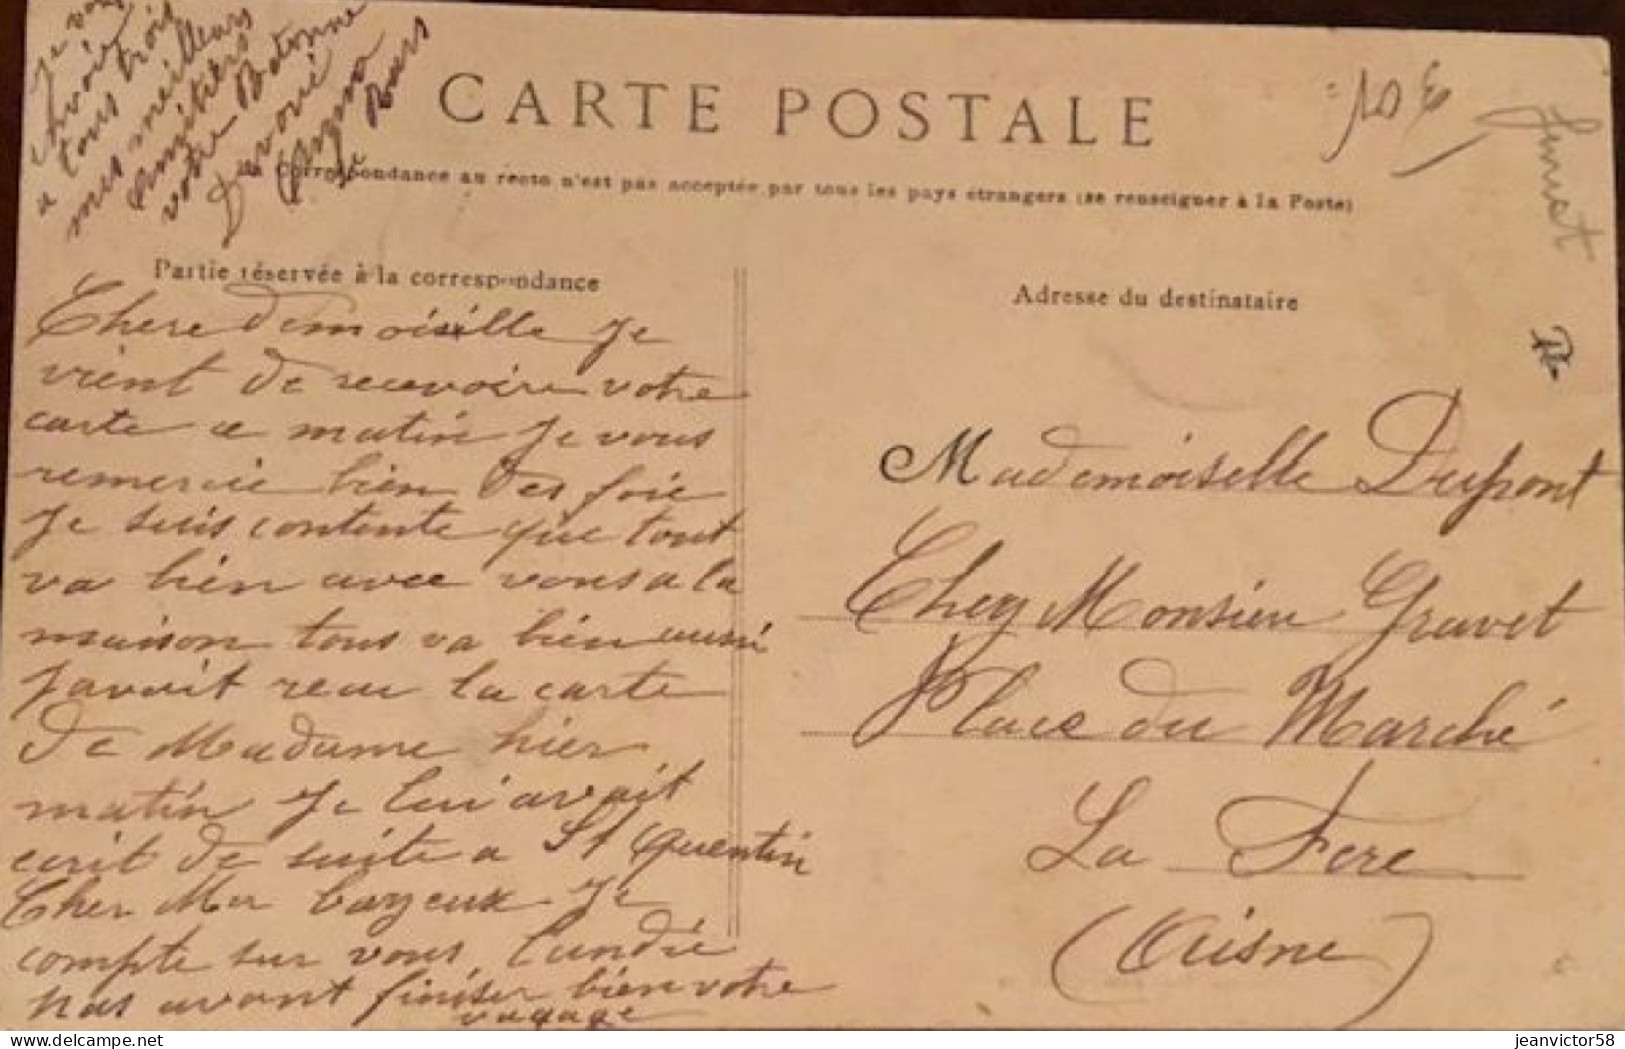 Je vous
envoie
a tous trois
mes meilleurs
Amitiers
votre Batonne
Devoué
Bars
CARTE POSTALE
La Correspondance au recto n'est pas acceptée par tous les pays étrangers (se renseigner à la Poste)
Partie réservée à la correspondance
Chere Demoiselle Je
vient de recevoire votre
carte ce matin Je vous
remercie bien des foie
Je suis contente que tout
va bien avec vous a la
maison tous va bien aussi
Javait recu la carte
De Madame hier
matin Je lui avait
ecrit de suite a St Quentin
Cher Mr bayeux Je
compte sur vous Lundie
pas avant finiser bien votre
vogage
10 €
Jeunet
Adresse du destinataire
Mademoiselle Dupont
Chez Monsieur Gravet
Place du Marché
La Fere
(Aisne)
delcampe.net
jeanvictor58